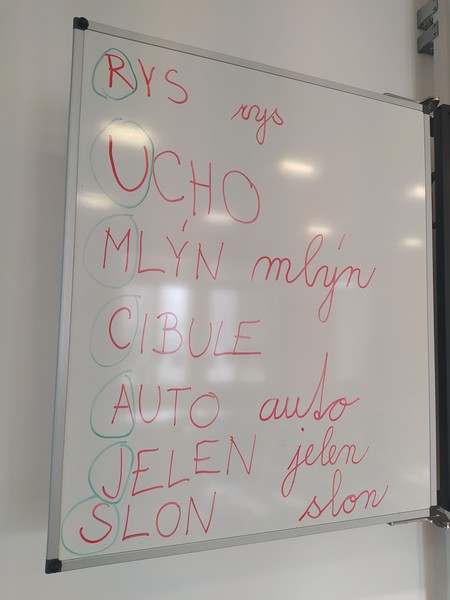 RYS rys
UCHO
MLÝN mlýn
CIBULE
AUTO auto
JELEN jelen
SLON slon